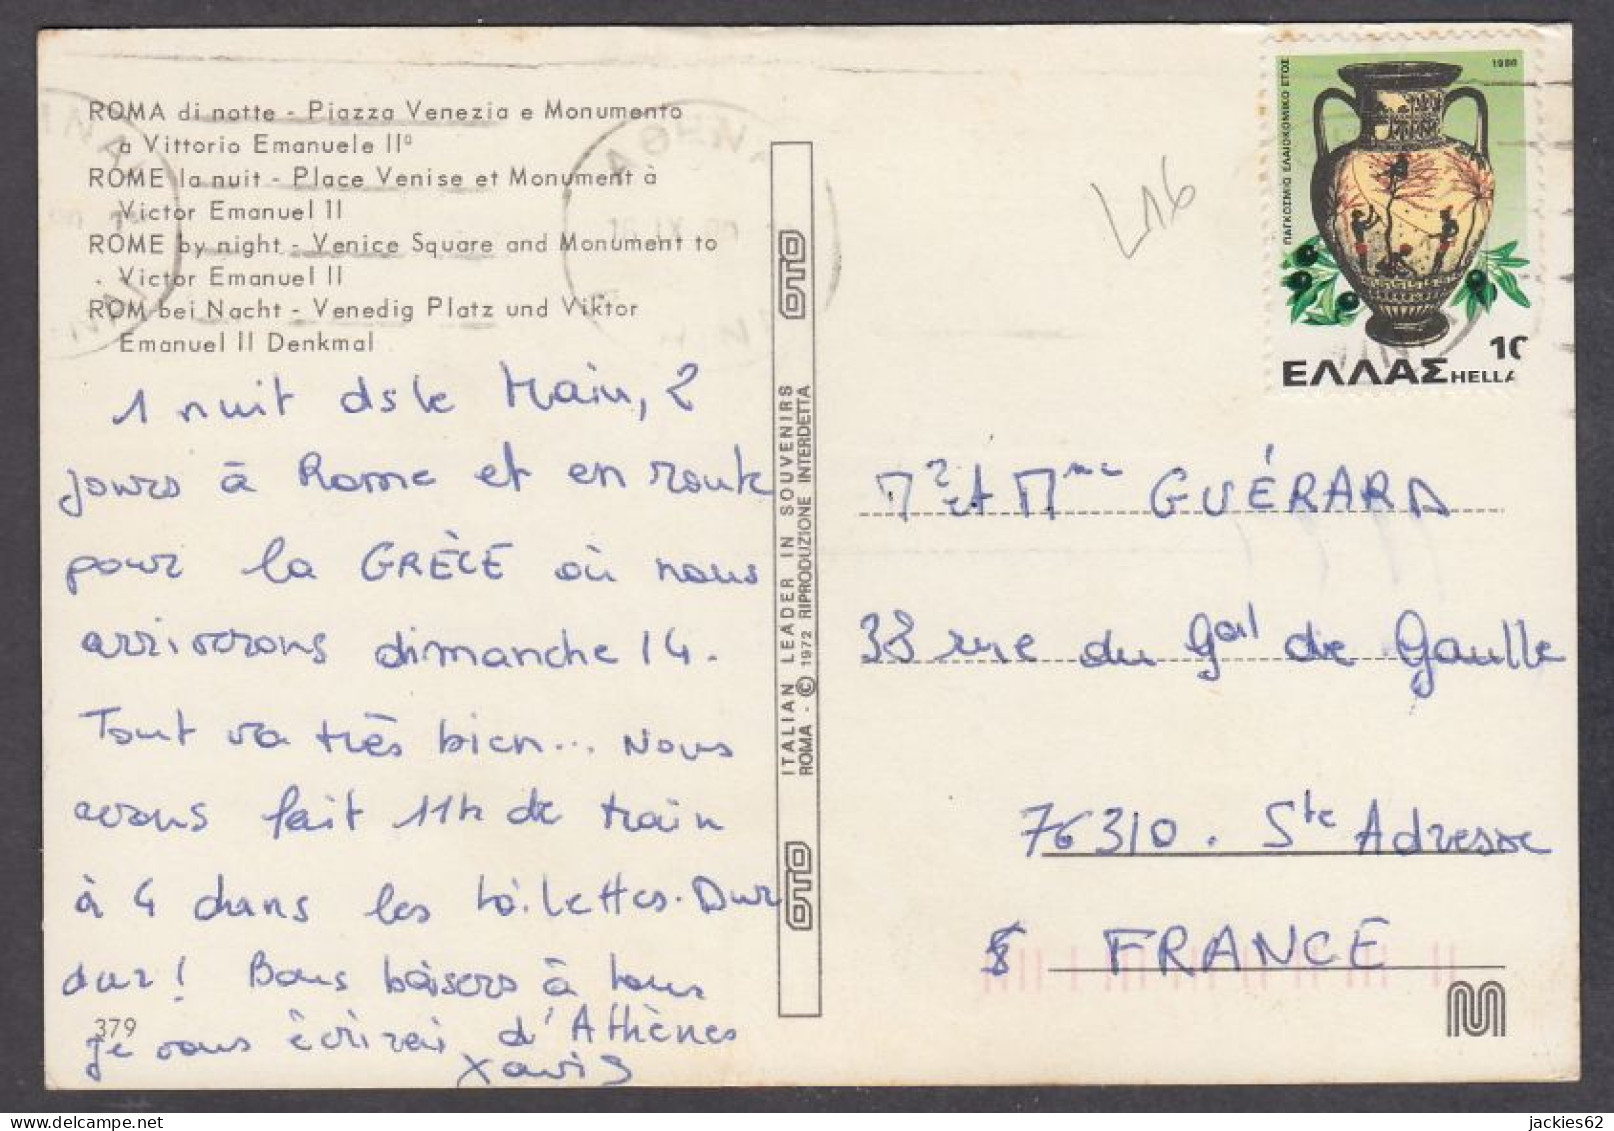 ROMA di notte - Piazza Venezia e Monumento
a Vittorio Emanuele IIº
ROME la nuit - Place Venise et Monument à
Victor Emanuel II
ROME by night - Venice Square and Monument to
Victor Emanuel II
ROM bei Nacht - Venedig Platz und Viktor
Emanuel II Denkmal
1 nuit ds le train, 2
jours à Rome et en route
pour la GRÈCE où nous
arriverons dimanche 14.
Tout va très bien... Nous
avons fait 11h de train
à 4 dans les toilettes. Dur
dur! Bons baisers à tous
je vous écrirai d'Athènes
Xavier
379
ITALIAN LEADER IN SOUVENIRS
ROMA - © 1972 RIPRODUZIONE INTERDETTA
OTO
OTO
L16
ΠΑΓΚΟΣΜΙΟ ΕΛΑΙΟΚΟΜΙΚΟ ΕΤΟΣ
10
ΕΛΛΑΣ HELLA
Mr et Mme GUÉRARD
33 rue du Gal de Gaulle
76310. Ste Adresse
FRANCE
jackies62